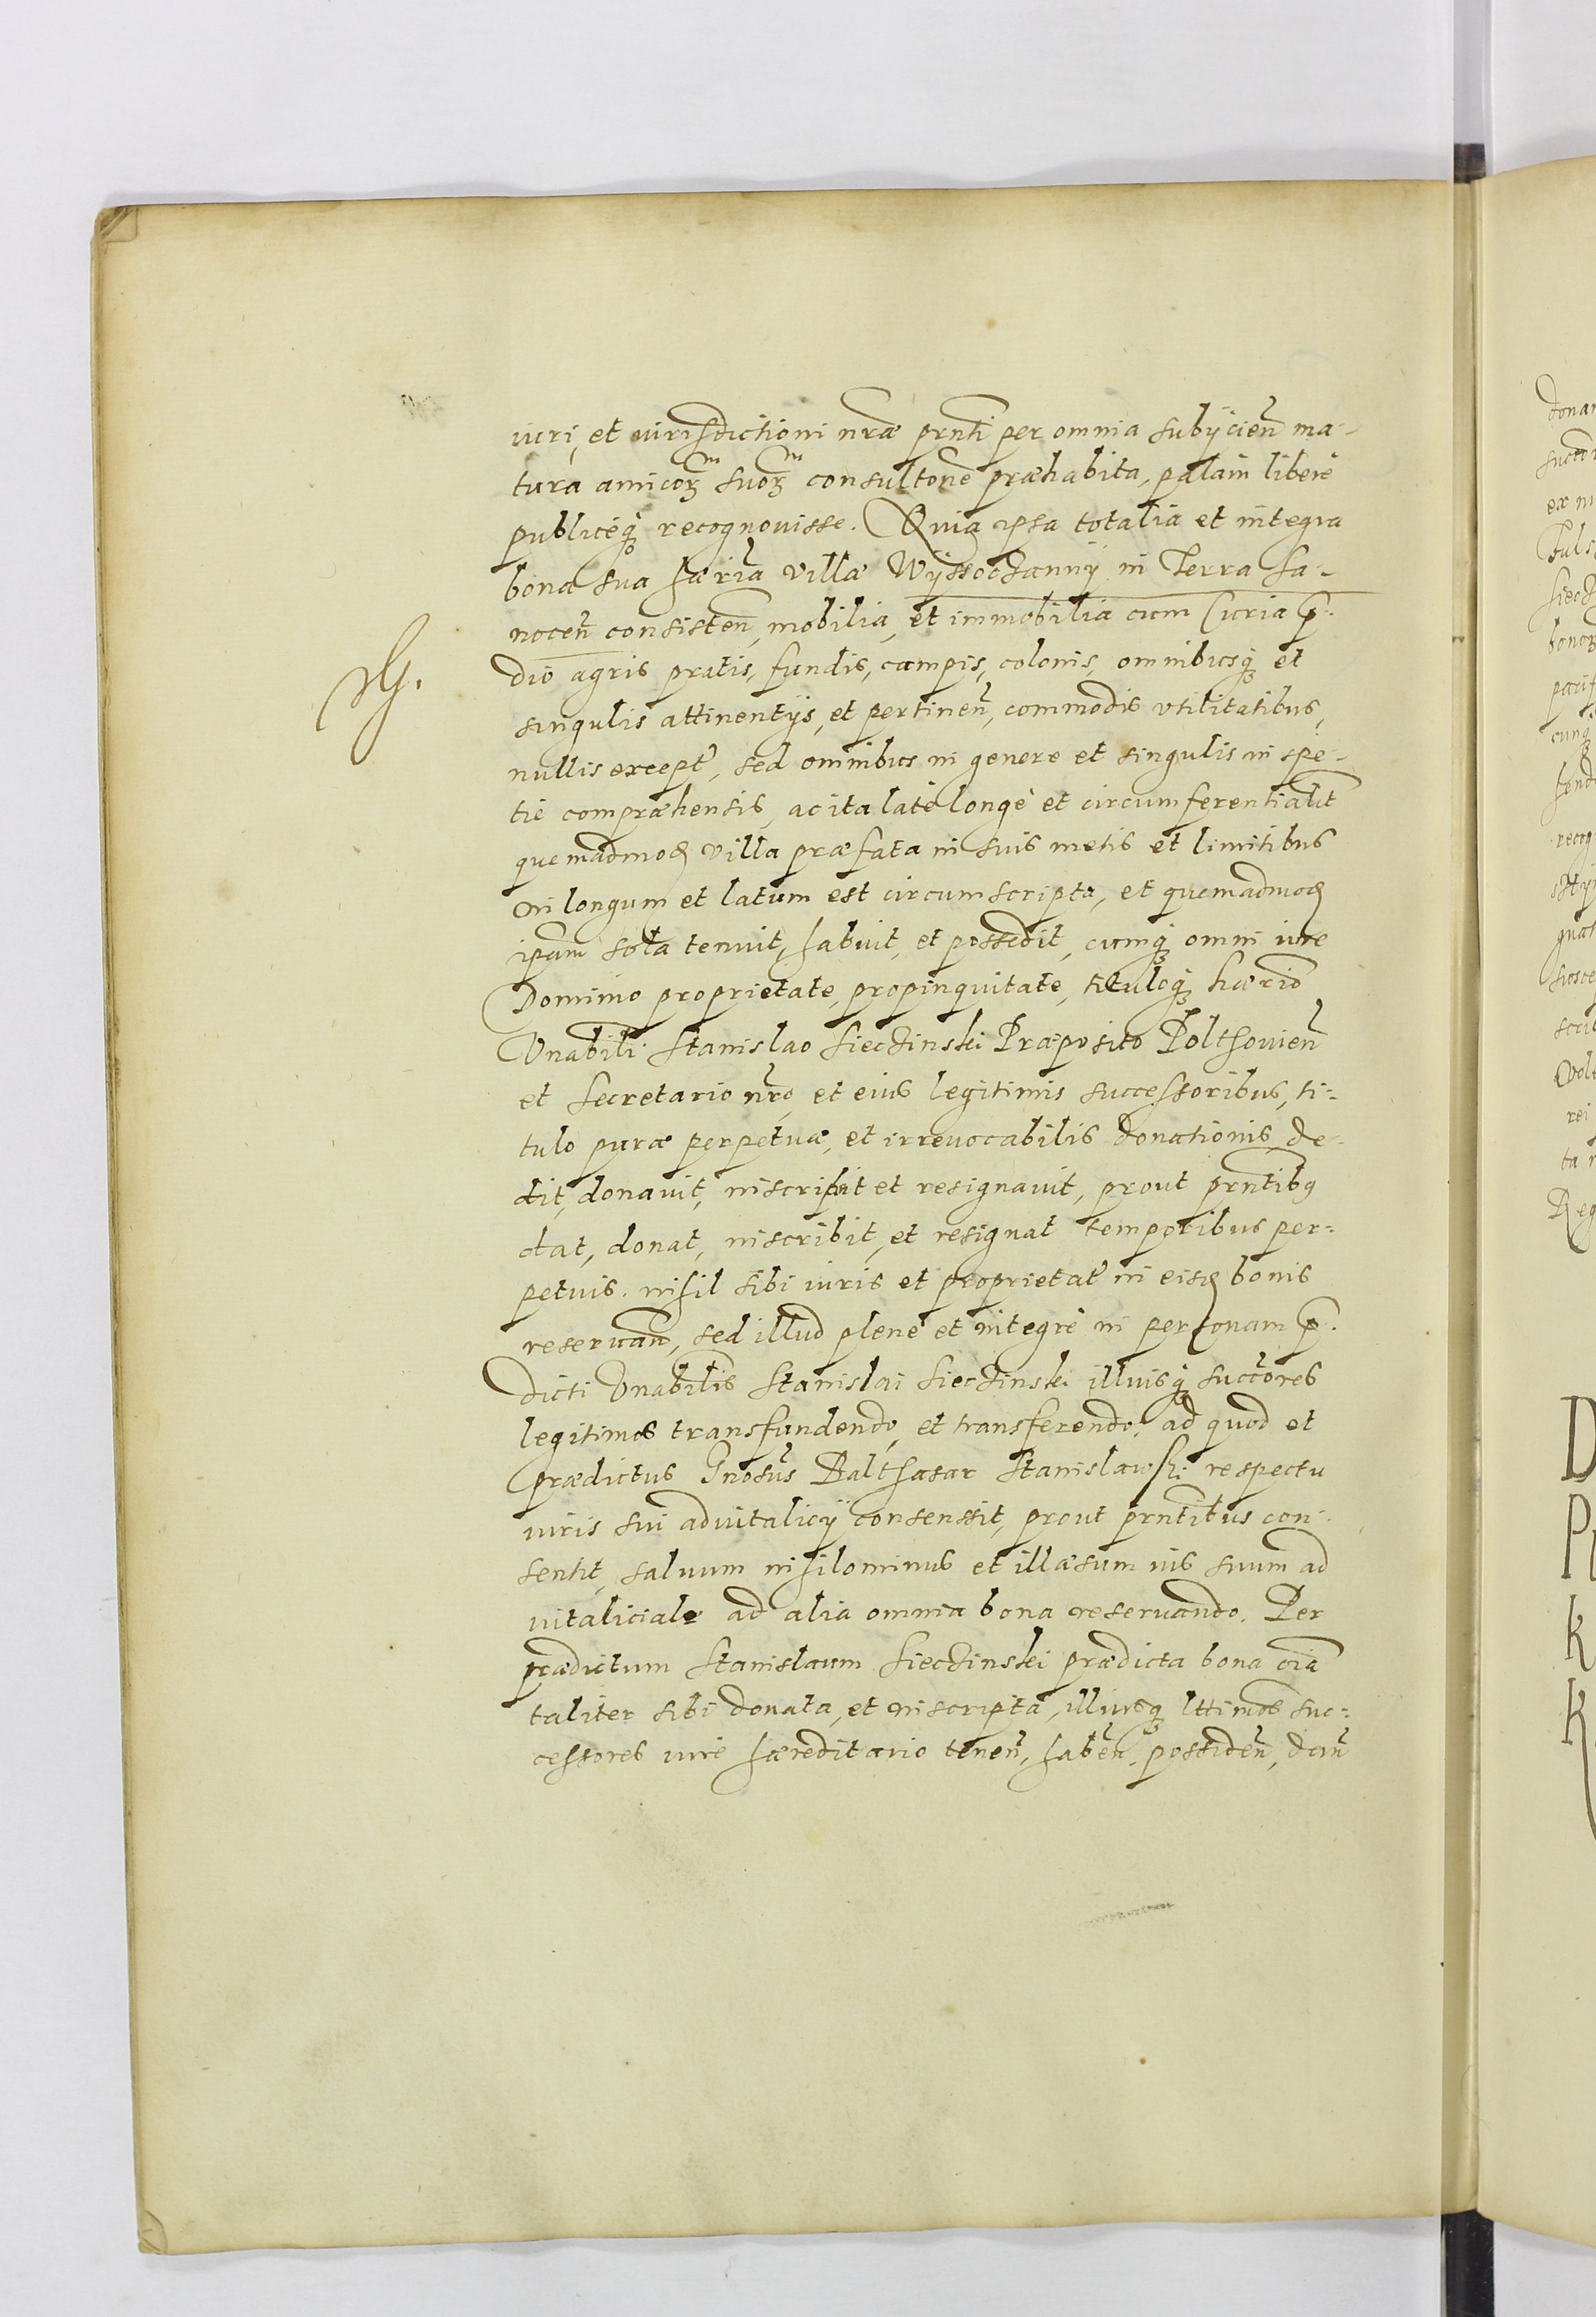 iuri, et iurisdictioni nr̃æ prñti per omnia subijcieñ ma-
tura amicoꝝ suoꝝ consultoñe præhabita, palam liberè
publicèqꝫ recognouisse. Quia ipsa totalia et integra
bona sua hæriã villæ Wyssoczanny in Terra Sa-
noceñ consisteñ, mobilia, et immobilia cum Curia p̃-
dio agris pratis, fundis, campis, colonis, omnibusqꝫ et
singulis attinentijs, et pertineñ, commodis vtilitatibus,
nullis except̃, sed omnibus in genere et singulis in spe-
tie compræhensis, ac ita latè longè et circumferentialit̃
quemadmoɖ villa præfata in suis metis et limitibus
in longum et latum est circumscripta, et quemadmoɖ
ip̃am sola tenuit, habuit, et possedit, cumqꝫ omni iure
Dominio proprietate, propinquitate, tituloqꝫ hæriõ
Vnabili Stanislao Sieczinski Præposito Polthouieñ
et Secretario nr̃o, et eius legitimis successoribus, ti-
tulo puræ perpetuæ, et irreuocabilis donationis, de-
dit, donauit, inscripsit et resignauit, prout prñtibꝰ
dat, donat, inscribit, et resignat temporibus per-
petuis. nihil sibi iuris et proprietat̃ in eisɖ bonis
reseruañ, sed illud plenè et integrè in personam p̃-
dicti Vnabilis Stanislai Sieczinski illiusqꝫ succ̃ores
legitimos transfundendo, et transferendo. ad quod et
prædictus Gnosus Balthasar Stanislawski respectu
iuris sui aduitalicij consenssit, prout prñtibus con-
sentit, saluum nihilominus et illæsum ius suum ad
uitaliciale ad alia omnia bona reseruando. Per
prædictum Stanislaum Sieczinski prædicta bona oĩa
taliter sibi donata, et inscripta, illiusqꝫ lttimos suc-
cessores iure hæreditario teneñ, habeñ, possideñ, dañ